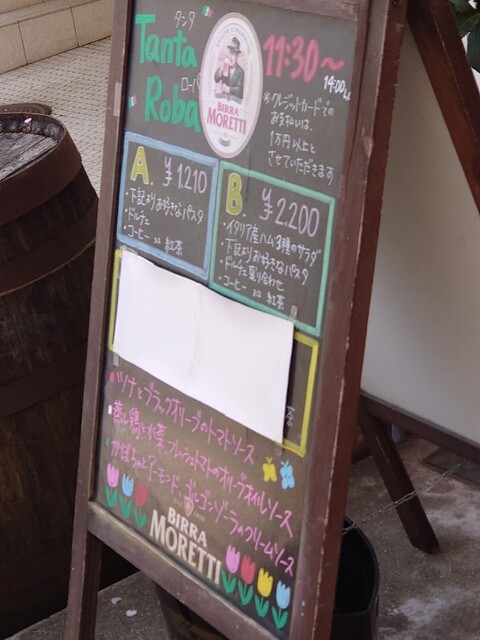 Tanta
タンタ
Roba
ローバ
BIRRA
MORETTI
11:30〜
14:00
※クレジットカードでの
お支払いは、
1万円以上と
させていただきます
A. ¥1.210
・下記よりお好きなパスタ
・ドルチェ
・コーヒー or 紅茶
B. ¥2.200
・イタリア産ハム3種のサラダ
・下記よりお好きなパスタ
・ドルチェ盛り合わせ
・コーヒー or 紅茶
茶
ツナとブラックオリーブのトマトソース
蒸し鶏と水菜、フレッシュトマトのオリーブオイルソース
かぼちゃとアーモンド、ゴルゴンゾーラのクリームソース
BIRRA
MORETTI